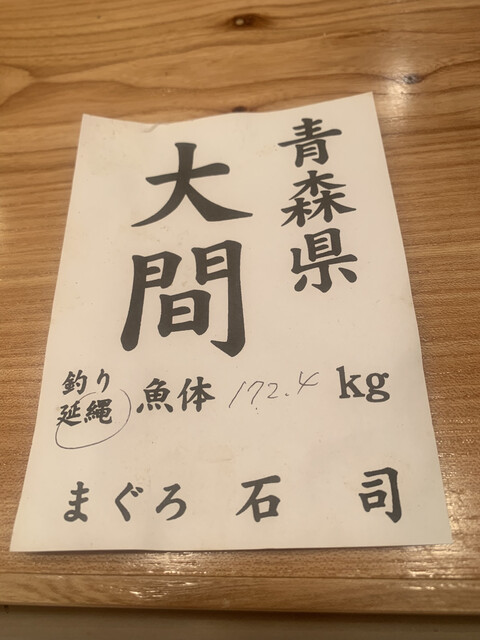 青森県
大間
釣り
延縄
魚体 172.4 kg
まぐろ 石司